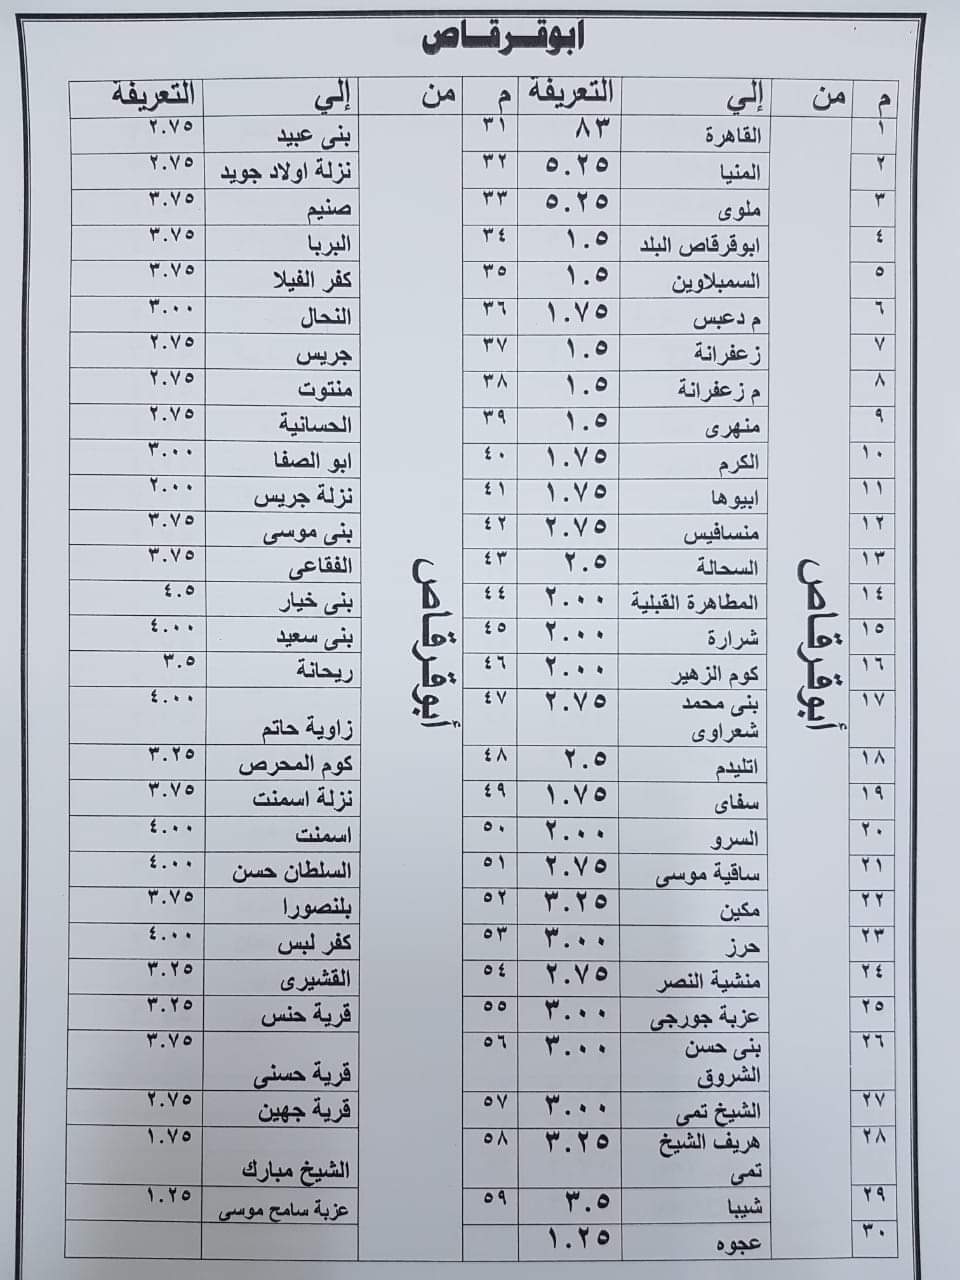 ابوقرقاص
م من إلي التعريفة م من إلي التعريفة
١ القاهرة ٨٣ ٣١ بنى عبيد ٢.٧٥
٢ المنيا ٥.٢٥ ٣٢ نزلة اولاد جويد ٢.٧٥
٣ ملوى ٥.٢٥ ٣٣ صنيم ٣.٧٥
٤ ابوقرقاص البلد ١.٥ ٣٤ البربا ٣.٧٥
٥ السمبلاوين ١.٥ ٣٥ كفر الفيلا ٣.٧٥
٦ م دعبس ١.٧٥ ٣٦ النحال ٣.٠٠
٧ زعفرانة ١.٥ ٣٧ جريس ٢.٧٥
٨ م زعفرانة ١.٥ ٣٨ منتوت ٢.٧٥
٩ منهرى ١.٥ ٣٩ الحسانية ٢.٧٥
١٠ الكرم ١.٧٥ ٤٠ ابو الصفا ٣.٠٠
١١ ابيوها ١.٧٥ ٤١ نزلة جريس ٢.٠٠
١٢ منسافيس ٢.٧٥ ٤٢ بنى موسى ٣.٧٥
١٣ السحالة ٢.٥ ٤٣ الفقاعى ٣.٧٥
١٤ المطاهرة القبلية ٢.٠٠ ٤٤ بنى خيار ٤.٥
أبوقرقاص أبوقرقاص
١٥ شرارة ٢.٠٠ ٤٥ بنى سعيد ٤.٠٠
١٦ كوم الزهير ٢.٠٠ ٤٦ ريحانة ٣.٥
١٧ بنى محمد شعراوى ٢.٧٥ ٤٧ زاوية حاتم ٤.٠٠
١٨ اتليدم ٢.٥ ٤٨ كوم المحرص ٣.٢٥
١٩ سفاى ١.٧٥ ٤٩ نزلة اسمنت ٣.٧٥
٢٠ السرو ٢.٠٠ ٥٠ اسمنت ٤.٠٠
٢١ ساقية موسى ٢.٧٥ ٥١ السلطان حسن ٤.٠٠
٢٢ مكين ٣.٢٥ ٥٢ بلنصورا ٣.٧٥
٢٣ حرز ٣.٠٠ ٥٣ كفر لبس ٤.٠٠
٢٤ منشية النصر ٢.٧٥ ٥٤ القشيرى ٣.٢٥
٢٥ عزبة جورجى ٣.٠٠ ٥٥ قرية حنس ٣.٢٥
٢٦ بنى حسن الشروق ٣.٠٠ ٥٦ قرية حسنى ٣.٧٥
٢٧ الشيخ تمى ٣.٠٠ ٥٧ قرية جهين ٢.٧٥
٢٨ هريف الشيخ تمى ٣.٢٥ ٥٨ الشيخ مبارك ١.٧٥
٢٩ شيبا ٣.٥ ٥٩ عزبة سامح موسى ١.٢٥
٣٠ عجوه ١.٢٥